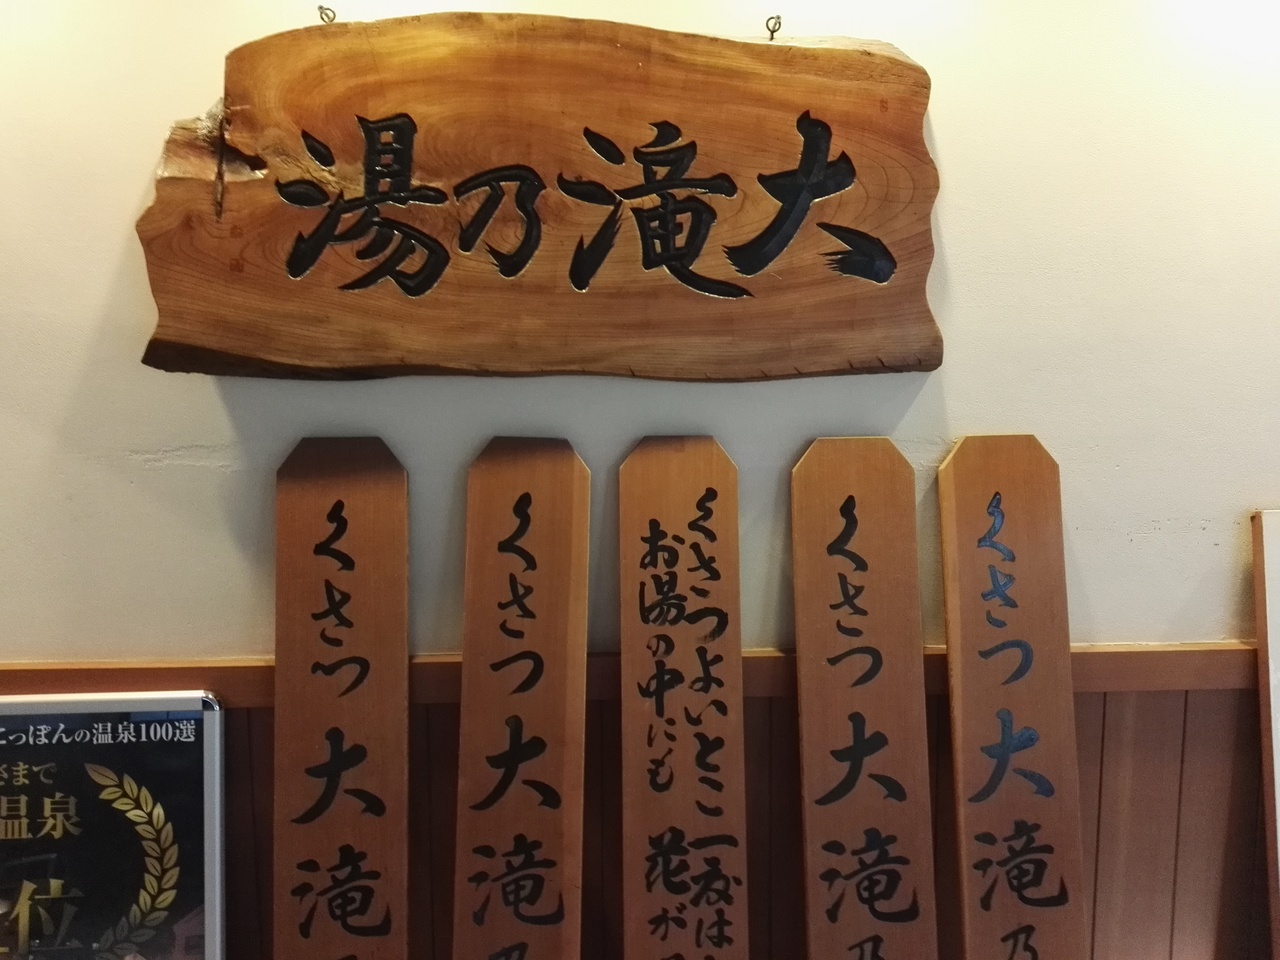 大滝乃湯
くさつ大滝乃
くさつ大滝乃
くさつよいとこ 一度は
お湯の中にも 花が
くさつ大滝乃
くさつ大滝
っぽんの温泉100選
さまで
温泉
位